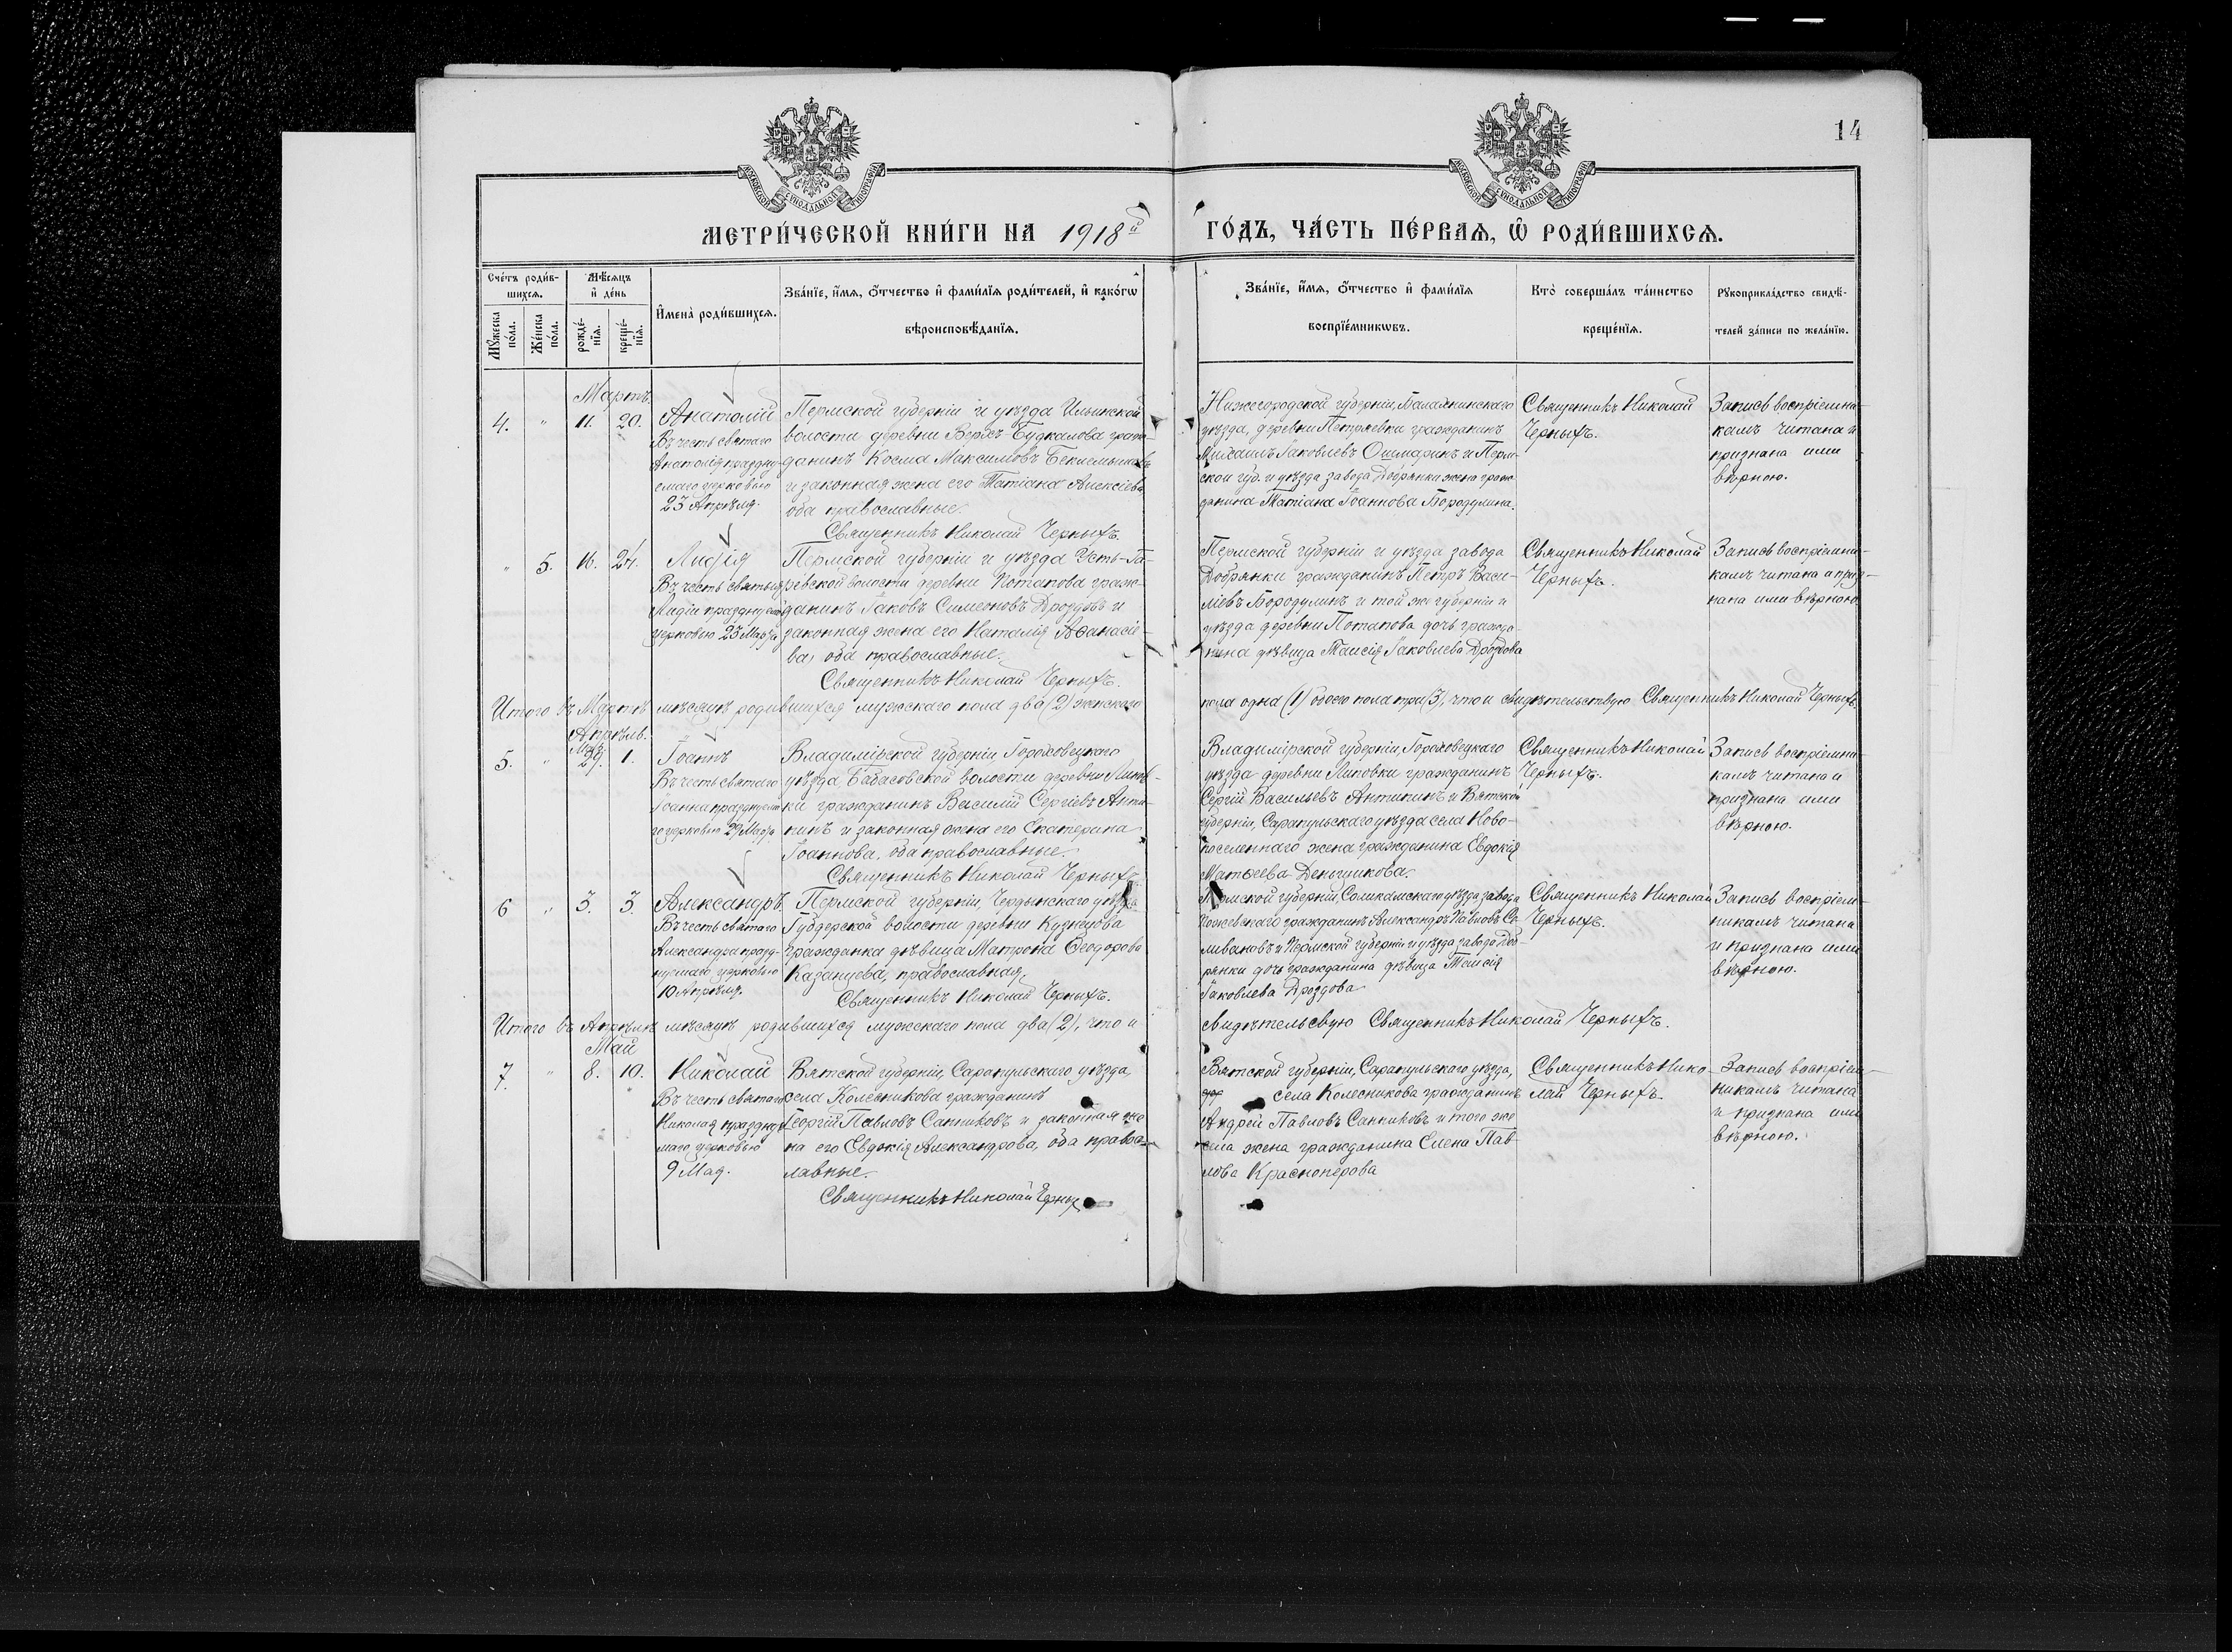 14
МОСКОВСКОЙ СѴНОДАЛЬНОЙ ТИПОГРАФІИ
МОСКОВСКОЙ СѴНОДАЛЬНОЙ ТИПОГРАФІИ
МЕТРИ́ЧЕСКОЙ КНИ́ГИ НА 1918й ГО́ДЪ, ЧА́СТЬ ПЕ́РВАѦ, Ѡ РОДИ́ВШИХСѦ.
Сче́тъ роди́в-
шихсѧ.
Мꙋ́жеска по́ла.
Же́нска по́ла.
Мѣ́сѧцъ
и҆ де́нь
рожде́-
нїѧ.
креще́-
нїѧ.
И҆мена̀ роди́вшихсѧ.
Зва́нїе, и҆́мѧ, ѻ҆́тчество и҆ фами́лїѧ роди́телей, и҆ како́гѡ
вѣроисповѣ́данїѧ.
Зва́нїе, и҆́мѧ, ѻ҆́тчество и҆ фами́лїѧ
воспрїе́мникѡвъ.
Кто̀ соверша́лъ та́инство
креще́нїѧ.
Рꙋкоприкла́дство свидѣ́-
телей за́писи по жела́нїю.
Мартъ
4. " 11. 20.
Анатолій
Въ честь святаго
Анатолія праздну-
емаго церковью
23 Апрѣля.
Пермской губерніи и уѣзда Ильинской
волости деревни Верхъ Будкалова граж-
данинъ Косма Максимовъ
и законная жена его Татіана Алексіева
оба православные.
Священникъ Николай Черныхъ.
Нижегородской губерніи, Балахнинскаго
уѣзда, деревни Петряевки гражданинъ
Михаилъ Іаковлевъ Ошмаринъ и Перм-
ской губ. и уѣзда завода Добрянки жена граж-
данина Татіана Іоаннова Бородулина.
Священникъ Николай
Черныхъ.
Запись воспріемни-
камъ читана и
признана ими
вѣрною.
" 5. 16. 24.
Лидія
Въ честь святыя
Лидіи празднуемой
церковью 23 Марта
Пермской губерніи и уѣзда Усть-Га-
ревской волости деревни Потапова граж-
данинъ Іаковъ Симеоновъ Дроздовъ и
законная жена его Наталія Аѳанасіе-
ва, оба православные.
Священникъ Николай Черныхъ.
Пермской губерніи и уѣзда завода
Добрянки гражданинъ Петръ Васи-
ліевъ Бородулинъ и той же губерніи и
уѣзда деревни Потапова дочь гражда-
нина дѣвица Таисія Іаковлева Дроздова
Священникъ Николай
Черныхъ.
Запись воспріемни-
камъ читана и приз-
нана ими вѣрною.
Итого въ Мартѣ мѣсяцѣ родившихся мужскаго пола два (2) женскаго
пола одна (1) обоего пола три (3), что и свидѣтельствую Священникъ Николай Черныхъ.
Апрѣль.
Мар.
5. " 29. 1.
Іоаннъ
Въ честь святаго
Іоанна празднуема
го церковью 29 Марта
Владимірской губерніи Гороховецкаго
уѣзда, Бабасовской волости деревни Липов-
ки гражданинъ Василій Сергіевъ Анти-
пинъ и законная жена его Екатерина
Іоаннова, оба православные.
Священникъ Николай Черныхъ.
Владимірской губерніи, Гороховецкаго
уѣзда деревни Липовки гражданинъ
Сергій Васильевъ Антипинъ и Вятской
губерніи, Сарапульскаго уѣзда села Ново-
поселеннаго жена гражданина Евдокія
Матѳеева Деньщикова.
Священникъ Николай
Черныхъ.
Запись воспріемни-
камъ читана и
признана ими
вѣрною.
6 " 3. 3.
Александръ
Въ честь святаго
Александра празд-
нуемаго церковью
10 Апрѣля.
Пермской губерніи, Чердынскаго уѣзда
Губдорской волости деревни Кузнецова
гражданка дѣвица Матрона Ѳеодорова
Казанцева, православная,
Священникъ Николай Черныхъ.
Пермской губерніи, Соликамскаго уѣзда завода
Пожевскаго гражданинъ Александръ Павловъ Се-
ливановъ и Пермской губерніи и уѣзда завода Доб-
рянки дочь гражданина дѣвица Таисія
Іаковлева Дроздова
Священникъ Николай
Черныхъ.
Запись воспріем-
никамъ читана
и признана ими
вѣрною.
Итого въ Апрѣлѣ мѣсяцѣ родившихся мужскаго пола два (2), что и
свидѣтельсвую Священникъ Николай Черныхъ.
Май
7. " 8. 10.
Николай
Въ честь святаго
Николая праздну
маго церковью
9 Мая.
Вятской губерніи, Сарапульскаго уѣзда,
села Колесникова гражданинъ
Георгій Павловъ Санниковъ и законная же
на его Евдокія Александрова, оба правос-
лавные.
Священникъ Николай Черных
Вятской губерніи, Сарапульскаго уѣзда,
села Колесникова гражданинъ
Андрей Павловъ Санниковъ и того же
села жена гражданина Елена Пав-
лова Красноперова
Священникъ Нико-
лай Черныхъ.
Запись воспріем-
никамъ читана
и признана ими
вѣрною.